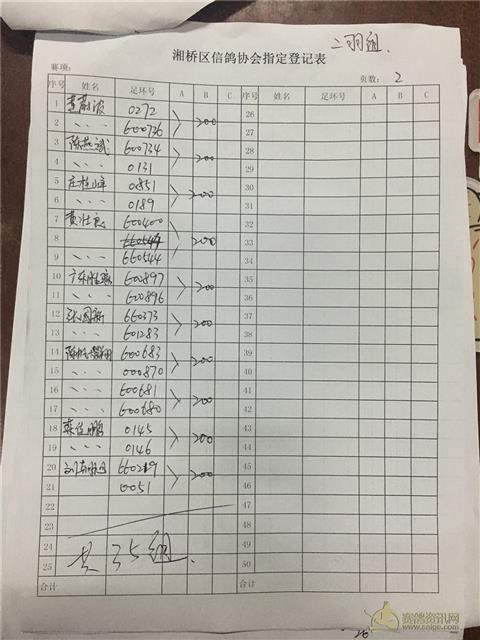 二羽组.
湘桥区信鸽协会指定登记表
赛项: 页数: 2
序号 姓名 足环号 A B C 序号 姓名 足环号 A B C
1 0272 > 200 26
2 、、、 600736 27
3 陈燕斌 600734 > 200 28
4 、、、 0131 29
5 庄桂峰 0851 > 200 30
6 、、、 0189 31
7 黄壮良 600400 > 200 32
8 33
9 、、、 660544 34
10 600897 > 200 35
11 、、、 600896 36
12 660373 > 200 37
13 、、、 601283 38
14 600683 > 200 39
15 、、、 000870 40
16 、、、 600681 > 200 41
17 、、、 600680 42
18 蔡佳鹏 0145 > 200 43
19 、、、 0146 44
20 660219 > 200 45
21 0051 46
22 47
23 48
24 共35组. 49
25 50
合计 合计
赛鸽资讯网
www.saige.com